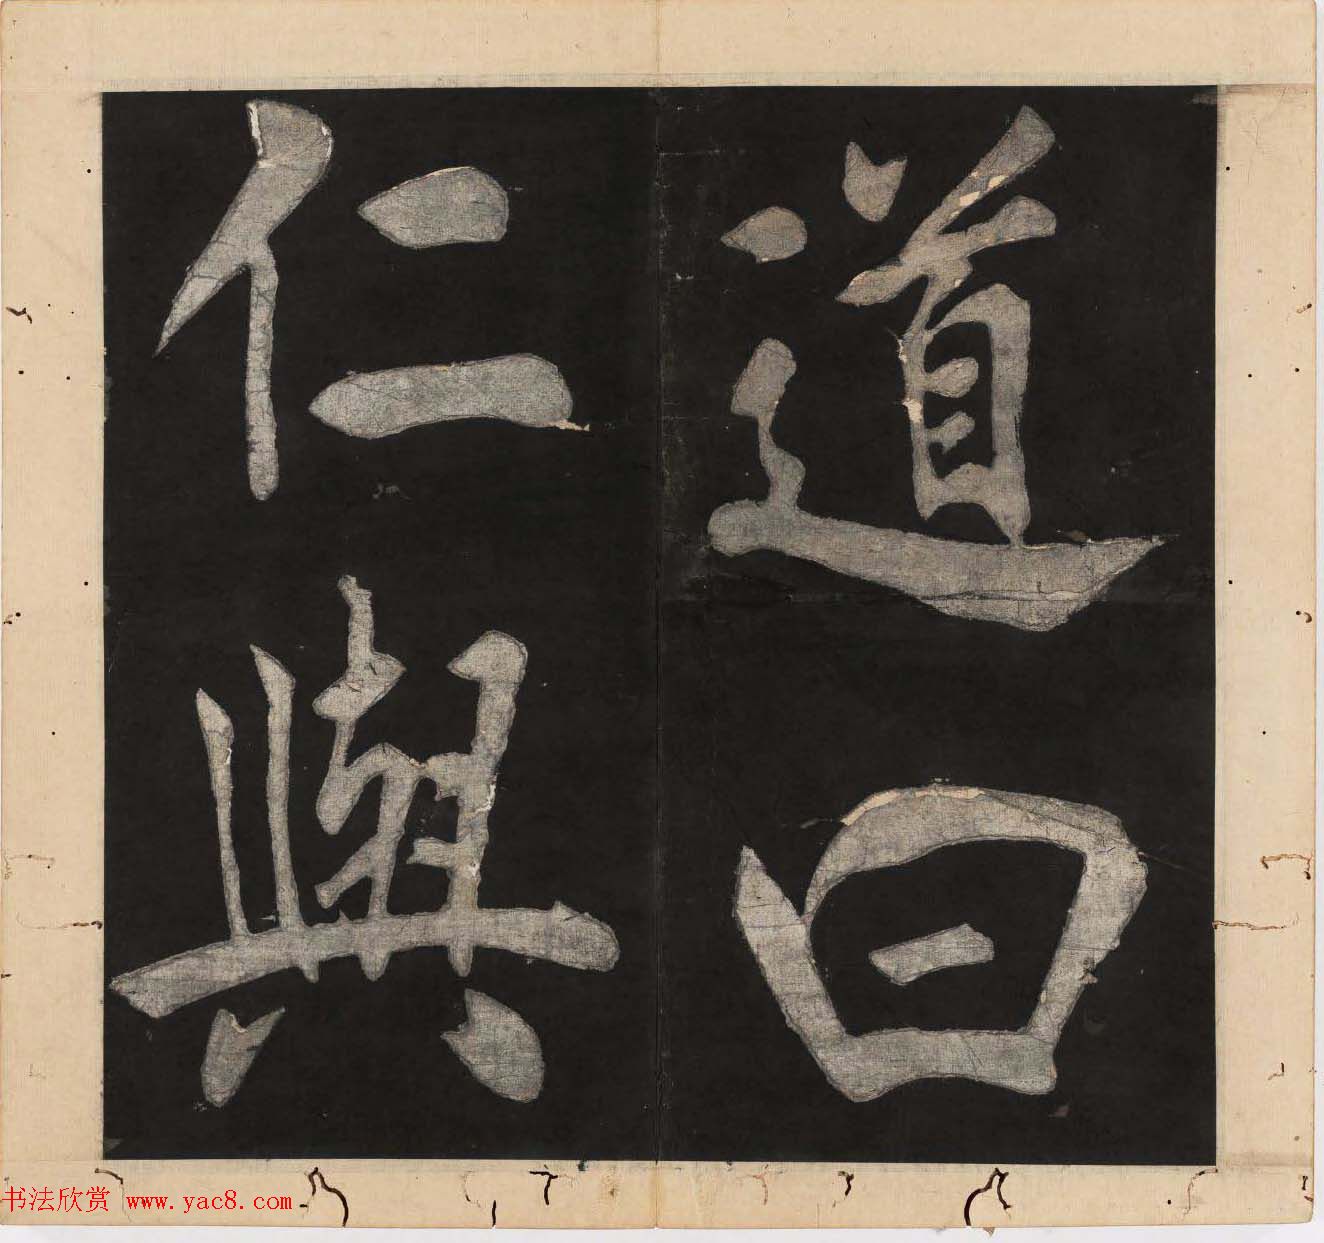 道曰
仁與
书法欣赏 www.yac8.com